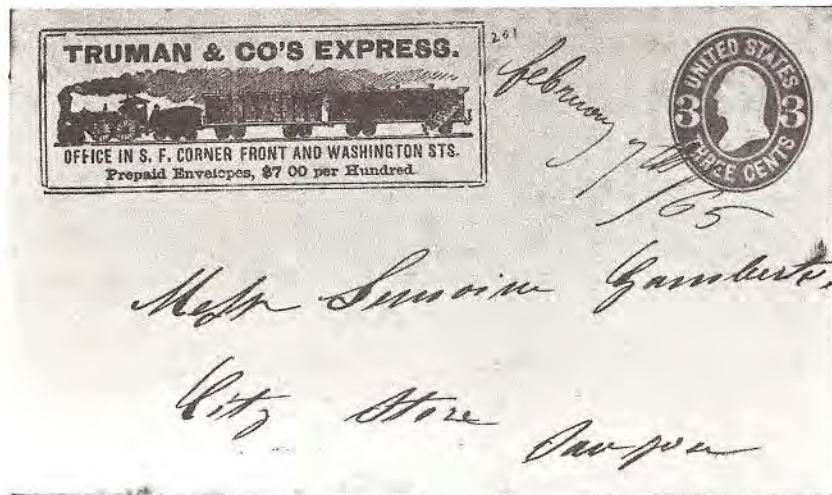 TRUMAN & CO'S EXPRESS.
OFFICE IN S. F. CORNER FRONT AND WASHINGTON STS.
Prepaid Envelopes, $7 00 per Hundred
201
february 7th
/65
UNITED STATES
3 3
THREE CENTS
Messr
City Store
San Jose